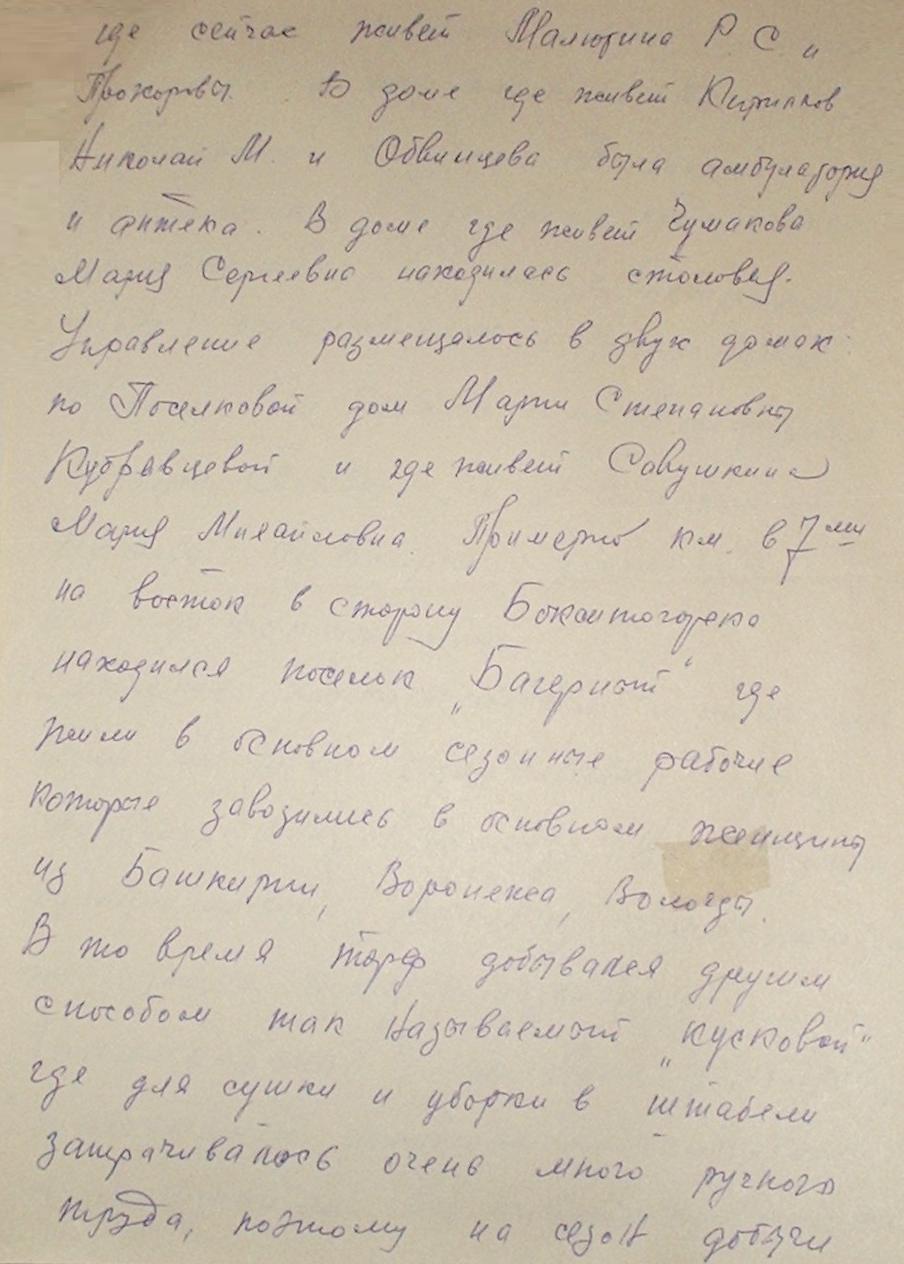 где сейчас живет Малютина Р. С и
Прохоровы. В доме где живет Кириллов
Николай М. и Обвинцева была амбулатория
и аптека. В доме где живет Чумакова
Мария Сергеевна находилась столовая.
Управление размещалось в двух домах:
по Поселковой дом Марии Степановны
Кудрявцевой и где живет Савушкина
Мария Михайловна. Примерно км. в 7ми
на восток в сторону Бокситогорска
находился поселок „Багерный“ где
жили в основном сезонные рабочие
которые завозились в основном женщины
из Башкирии, Воронежа, Вологды.
В то время торф добывался другим
способом так называемый „кусковой“
где для сушки и уборки в штабели
затрачивалось очень много ручного
труда, поэтому на сезон добычи